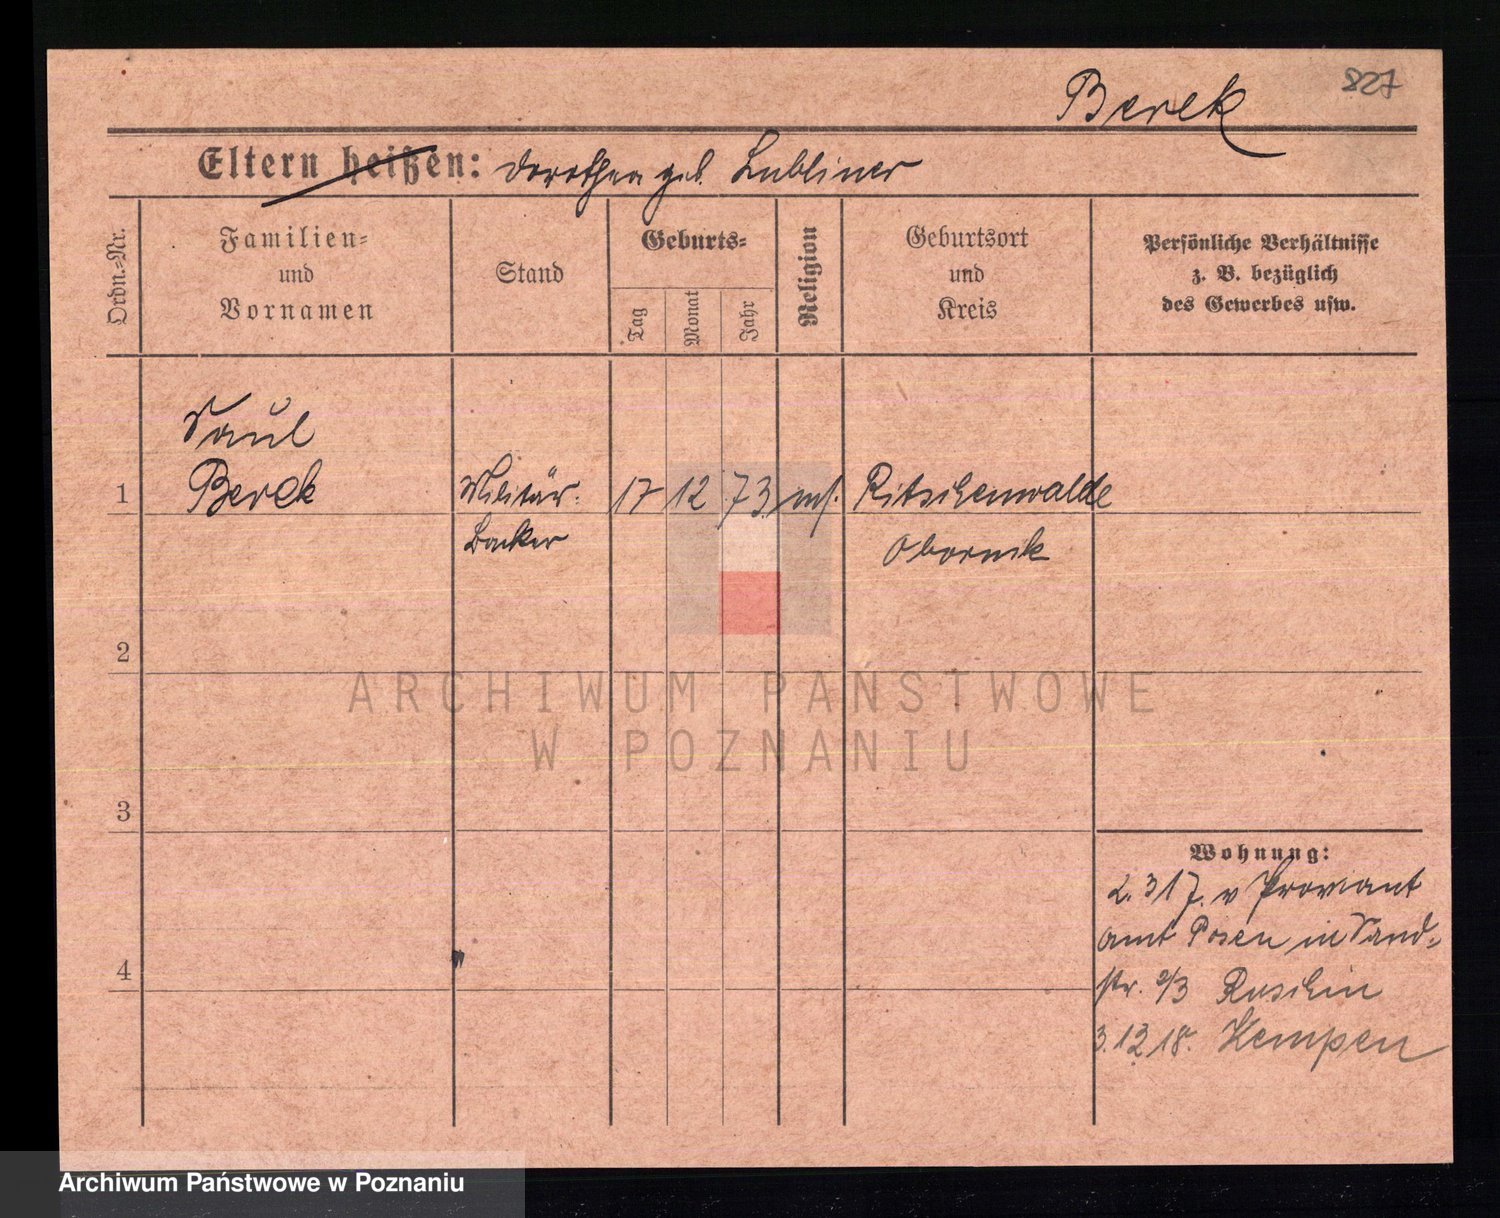 827
Berek
Eltern heißen: Dorothea geb. Lubliner
Ordn.-Nr.
Familien-
und
Vornamen
Stand
Geburts-
Tag
Monat
Jahr
Religion
Geburtsort
und
Kreis
Persönliche Verhältnisse
z. B. bezüglich
des Gewerbes usw.
Saul
1 Berek Militär- 17 12 73 mos. Ritschenwalde
Bäcker Obornik
2
3
4
Wohnung:
2.3 17. v Proviant
amt Posen in Sand-
str. 2/3 Ruschin
3.12 18. Kempen
ARCHIWUM PAŃSTWOWE
W POZNANIU
Archiwum Państwowe w Poznaniu